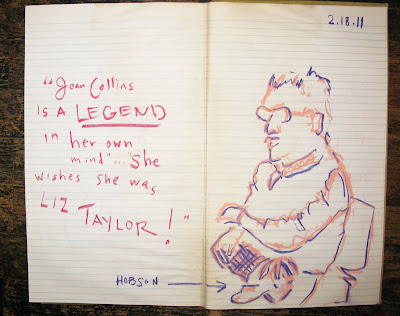 "Joan Collins
IS A LEGEND
in her own
mind"..."She
wishes she was
LIZ TAYLOR!"
HOBSON
2.18.11